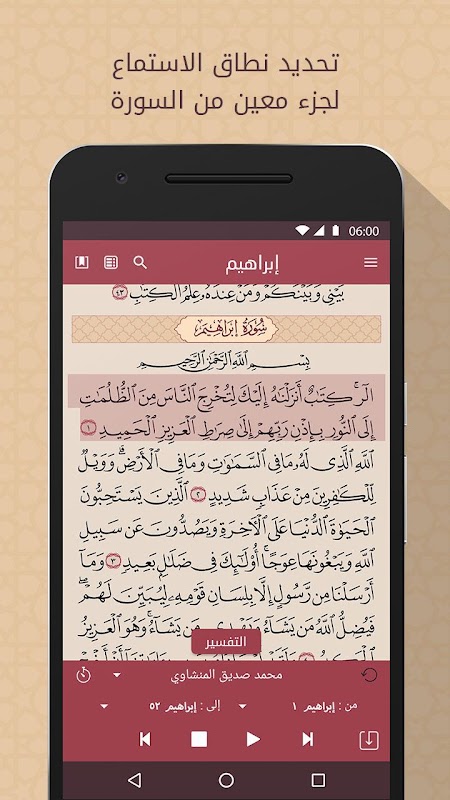 تحديد نطاق الاستماع
لجزء معين من السورة
06:00
إبراهيم
بَيْنِي وَبَيْنَكُمْ وَمَنْ عِندَهُ عِلْمُ الْكِتَٰبِ ٤٣
سُورَةُ إِبْرَاهِيمَ
بِسْمِ اللَّهِ الرَّحْمَٰنِ الرَّحِيمِ
الٓر ۚ كِتَٰبٌ أَنزَلْنَٰهُ إِلَيْكَ لِتُخْرِجَ النَّاسَ مِنَ الظُّلُمَٰتِ
إِلَى النُّورِ بِإِذْنِ رَبِّهِمْ إِلَىٰ صِرَٰطِ الْعَزِيزِ الْحَمِيدِ ١
اللَّهِ الَّذِي لَهُ مَا فِي السَّمَٰوَٰتِ وَمَا فِي الْأَرْضِ ۗ وَوَيْلٌ
لِّلْكَٰفِرِينَ مِنْ عَذَابٍ شَدِيدٍ ٢ الَّذِينَ يَسْتَحِبُّونَ
الْحَيَوٰةَ الدُّنْيَا عَلَى الْآخِرَةِ وَيَصُدُّونَ عَن سَبِيلِ
اللَّهِ وَيَبْغُونَهَا عِوَجًا ۚ أُولَٰئِكَ فِي ضَلَٰلٍ بَعِيدٍ ٣ وَمَا
أَرْسَلْنَا مِن رَّسُولٍ إِلَّا بِلِسَانِ قَوْمِهِ لِيُبَيِّنَ لَهُمْ ۖ
فَيُضِلُّ اللَّهُ مَن يَشَاءُ وَيَهْدِي مَن يَشَاءُ ۚ وَهُوَ الْعَزِيزُ
التفسير
محمد صديق المنشاوي
من : إبراهيم ١ إلى : إبراهيم ٥٢